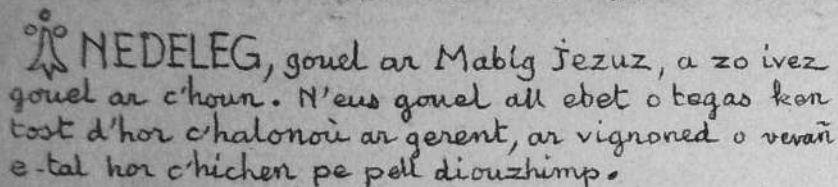 NEDELEG, gouel ar Mabig Jezuz, a zo ivez
gouel ar c'houn. N'eus gouel all ebet o tegas ken
tost d'hor c'halonoù ar gerent, ar vignoned o vevañ
e-tal hor c'hichen pe pell diouzhimp.